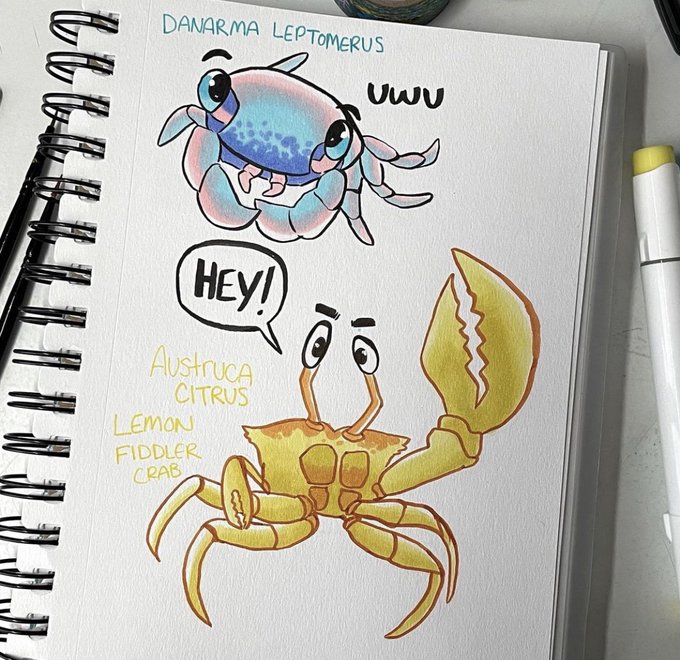 DANARMA LEPTOMERUS
UWU
HEY!
AUSTRUCA
CITRUS
LEMON
FIDDLER
CRAB